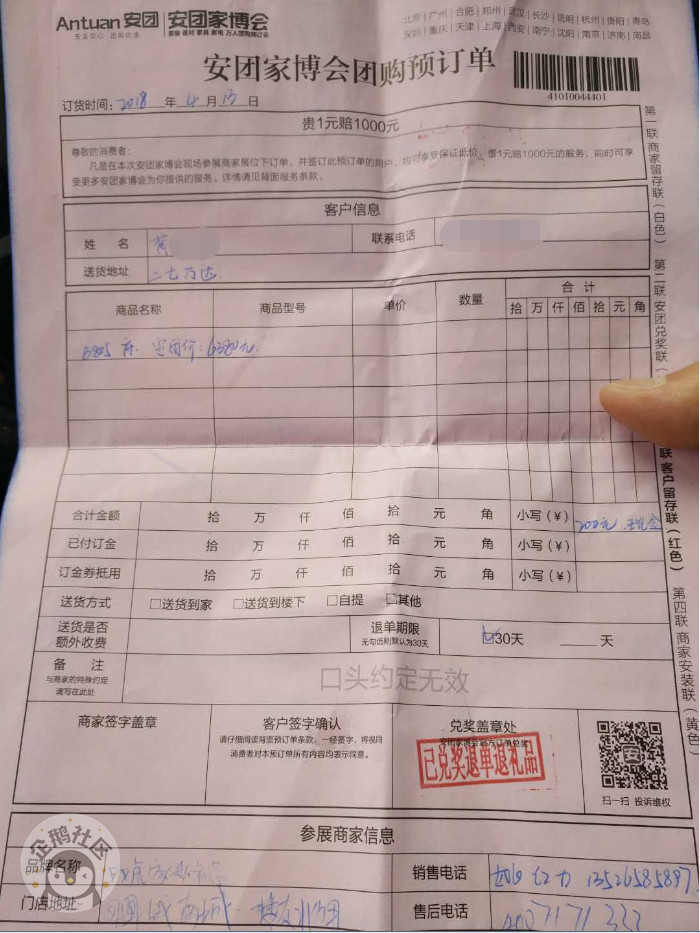 Antuan 安团 | 安团家博会
安全安心 团购优选
家装 建材 家具 家电 万人团购预订会
北京|广州|合肥|郑州|武汉|长沙|昆明|杭州|贵阳|青岛
深圳|重庆|天津|上海|西安|南宁|沈阳|南京|济南|南昌
安团家博会团购预订单
41010044401
订货时间: 2018 年 4 月 13 日
贵1元赔1000元
尊敬的消费者:
凡是在本次安团家博会现场参展商家展位下订单,并签订此预订单的用户,均可享受保证此价,贵1元赔1000元的服务;同时可享
受更多安团家博会为你提供的服务。详情请见背面服务条款。
客户信息
姓 名 黄 联系电话
送货地址 二七万达
商品名称 商品型号 单价 数量 合 计
拾 万 仟 佰 拾 元 角
床 定团价:6380元
合计金额 拾 万 仟 佰 拾 元 角 小写(¥) 200元 现金
已付订金 拾 万 仟 佰 拾 元 角 小写(¥)
订金券抵用 拾 万 仟 佰 拾 元 角 小写(¥)
送货方式 □送货到家 □送货到楼下 □自提 □其他
送货是否
额外收费
退单期限
无勾选则默认为30天
☑30天 天
备 注
与商家的特殊约定
请写在此处
口头约定无效
商家签字盖章
客户签字确认
请仔细阅读背面预订单条款,一经签字,将视同
消费者对本预订单所有内容均表示同意。
兑奖盖章处
已兑奖退单退礼品
扫一扫 投诉维权
参展商家信息
品牌名称
销售电话 13526585897
门店地址
售后电话 4007171333
第一联 商家留存联(白色)
第二联 安团兑奖联(
联 客户留存联(红色)
第四联 商家安装联(黄色)
企鹅社区